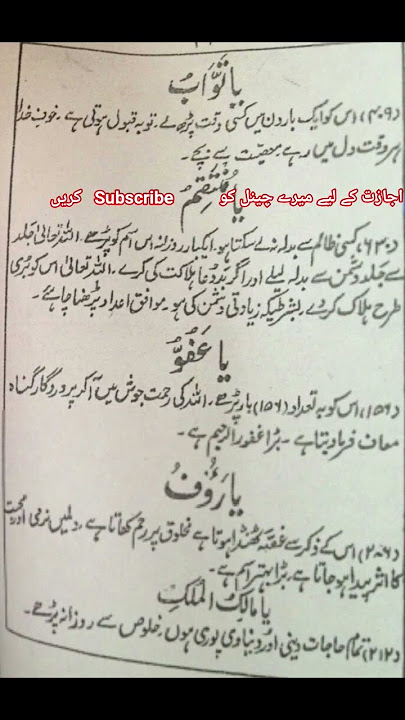 یا تَوَّابُ
(۴۰۹) اس کو ایک بار دن میں کسی وقت پڑھ لے۔ توبہ قبول ہوتی ہے۔ خوفِ خدا
ہر وقت دل میں رہے۔ معصیت سے بچے۔
یا مُنْتَقِمُ
اجازت کے لیے میرے چینل کو Subscribe کریں
(۶۳۰) کسی ظالم سے بدلہ نہ لے سکتا ہو۔ ایکبار روزانہ اس اسم کو پڑھے۔ اللہ تعالیٰ جلد
سے جلد دشمن سے بدلہ لیلے اور اگر بددعا ہلاکت کی کرے۔ اللہ تعالیٰ اس کو بُری
طرح ہلاک کر دے۔ بشرطیکہ زیادتی دشمن کی ہو۔ موافق اعداد پڑھنا چاہئے۔
یا عَفُوُّ
(۱۵۶) اس کو بہ تعداد (۱۵۶) بار پڑھے۔ اللہ کی رحمت جوش میں آ کر پروردگار گناہ
معاف فرما دیتا ہے۔ بڑا غفور الرحیم ہے۔
یا رَؤُفُ
(۲۰۶) اس کے ذکر سے غصہ ٹھنڈا ہوتا ہے مخلوق پر رحم کھاتا ہے۔ دلمیں نرمی اور محبت
کا اثر پیدا ہو جاتا ہے۔ بڑا بہتر اسم ہے۔
یا مَالِکَ الْمُلْکِ
(۲۱۲) تمام حاجات دینی اور دنیاوی پوری ہوں۔ خلوص سے روزانہ پڑھے۔